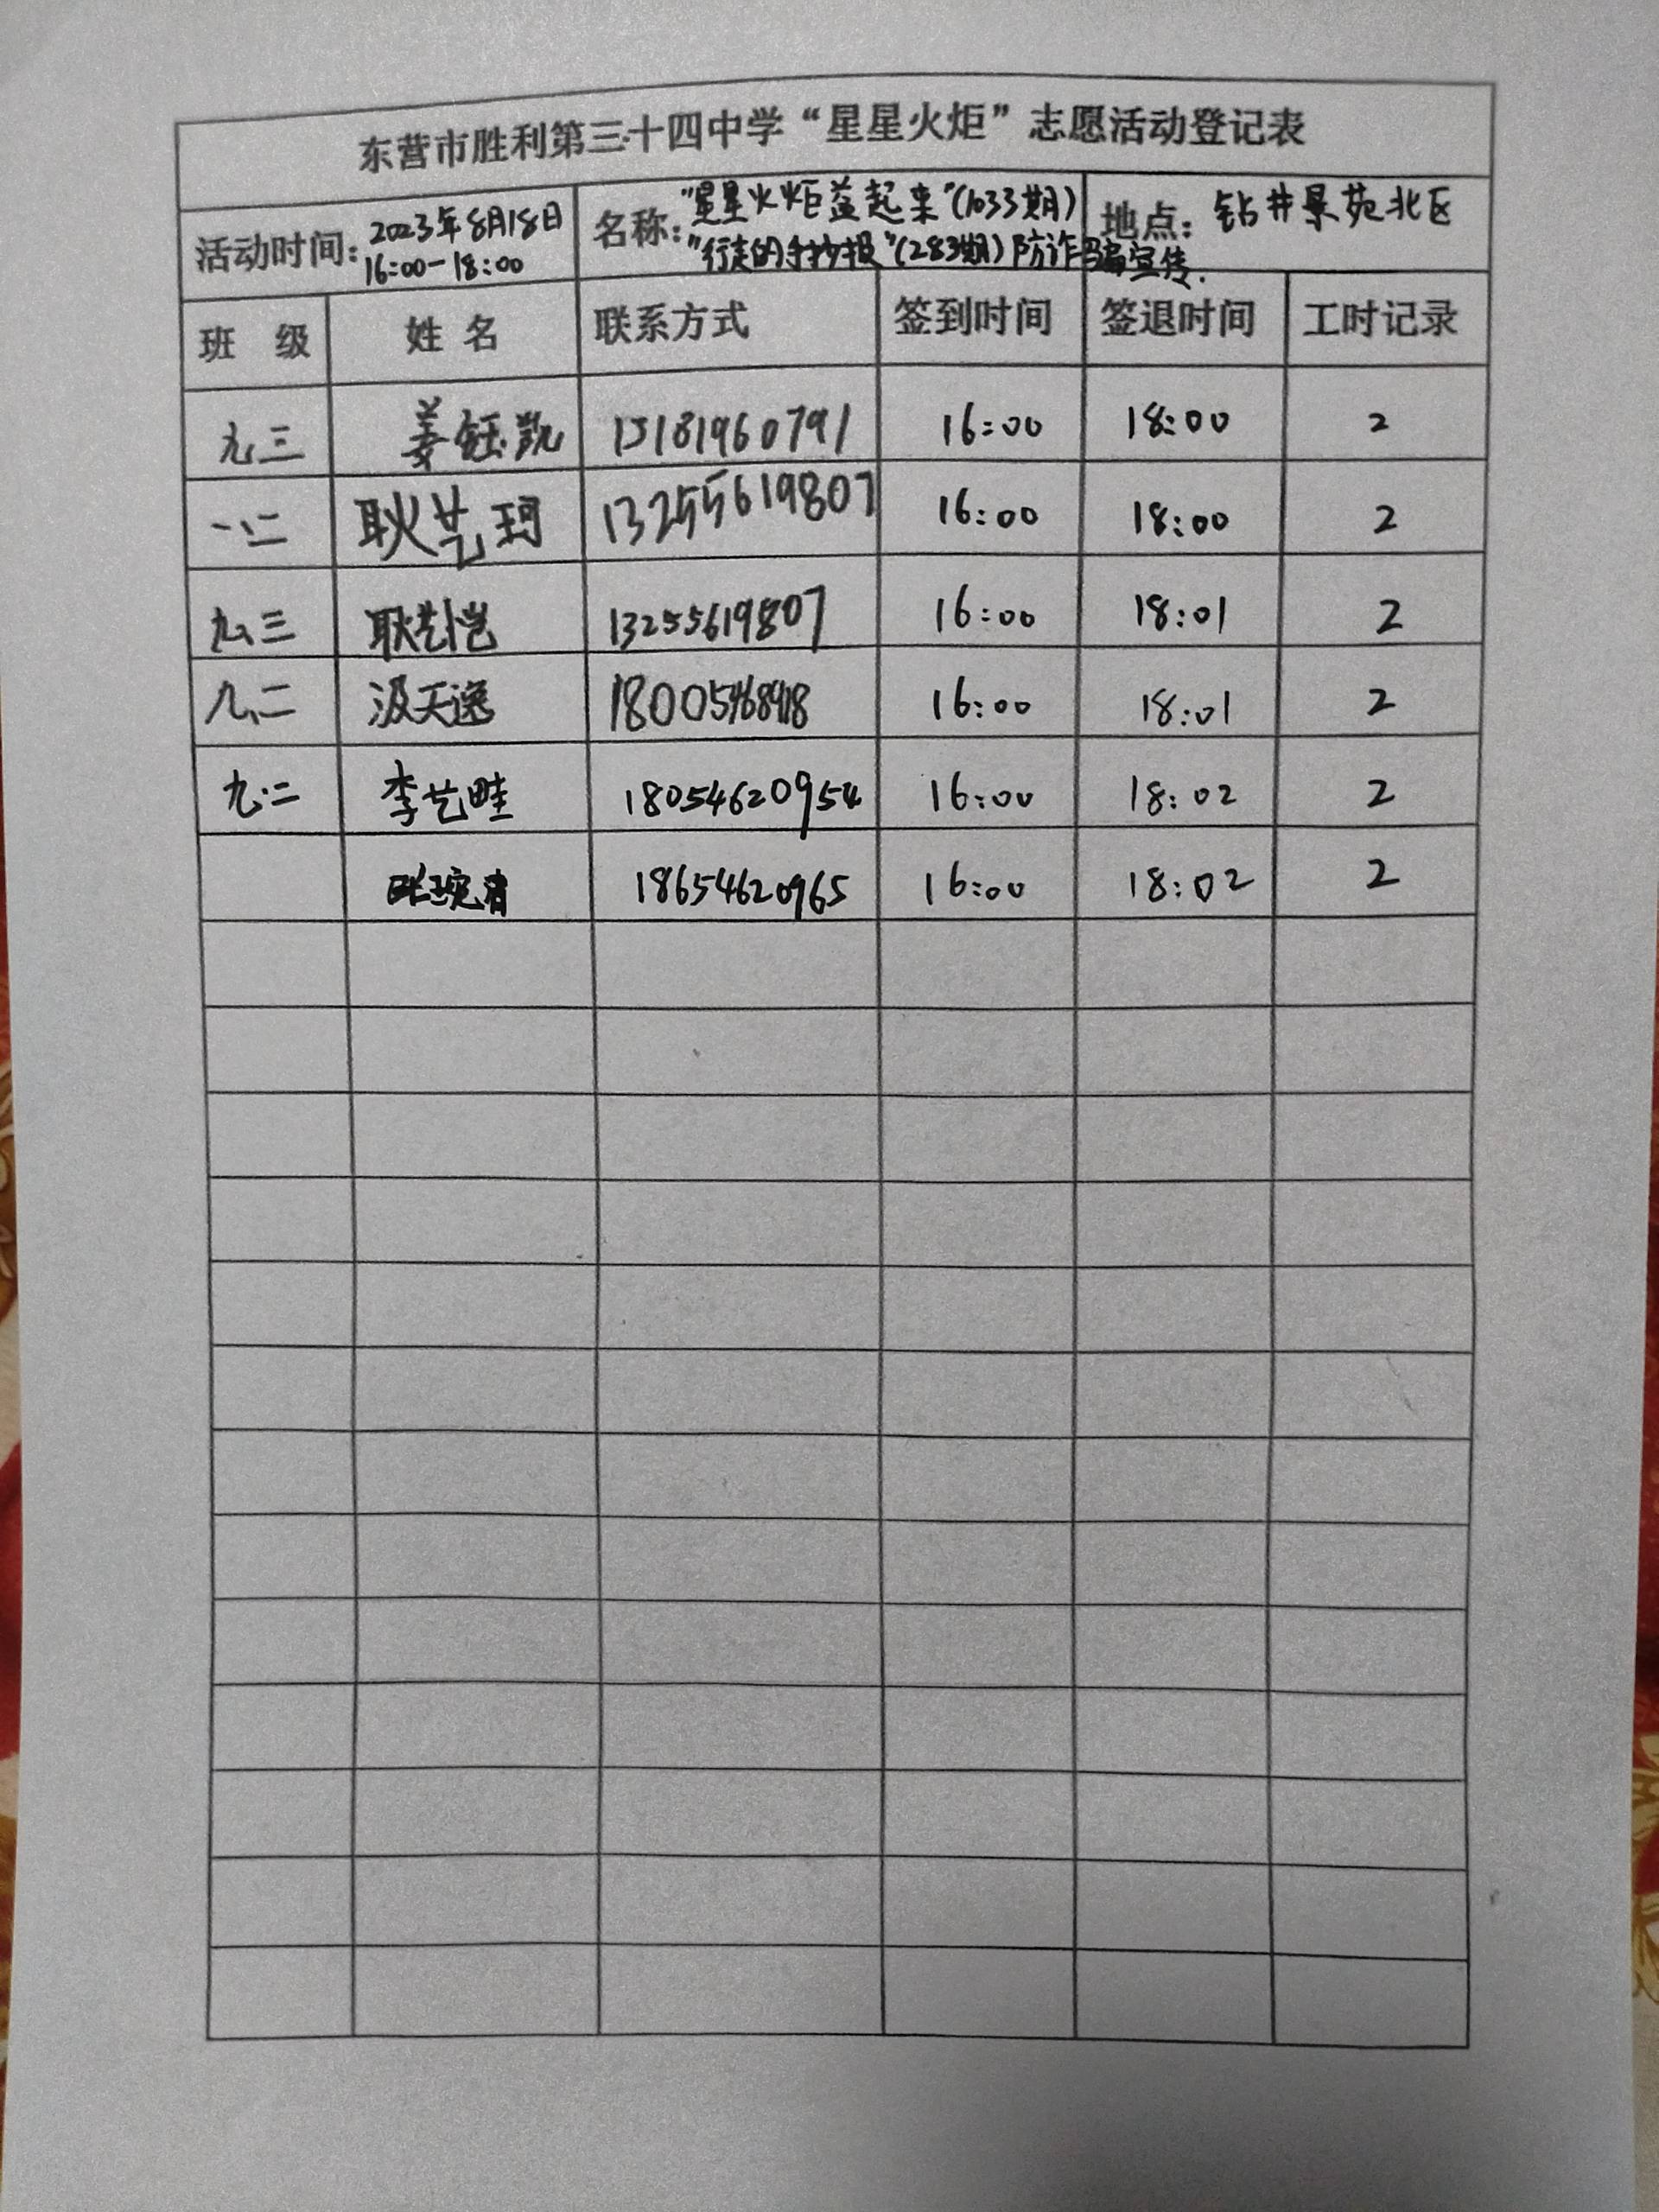 东营市胜利第三十四中学“星星火炬”志愿活动登记表
活动时间：2023年8月18日 16:00-18:00 名称："星星火炬益起来"(1033期) "行走的手抄报"(283期)防诈骗宣传. 地点：钻井景苑北区
班 级 姓 名 联系方式 签到时间 签退时间 工时记录
九三 姜钰凯 15181960791 16:00 18:00 2
一、二 耿艺珂 13255619807 16:00 18:00 2
九、三 耿艺恺 13255619807 16:00 18:01 2
九、二 汲天逸 16:00 18:01 2
九.二 李艺畦 18054620954 16:00 18:02 2
18654620965 16:00 18:02 2